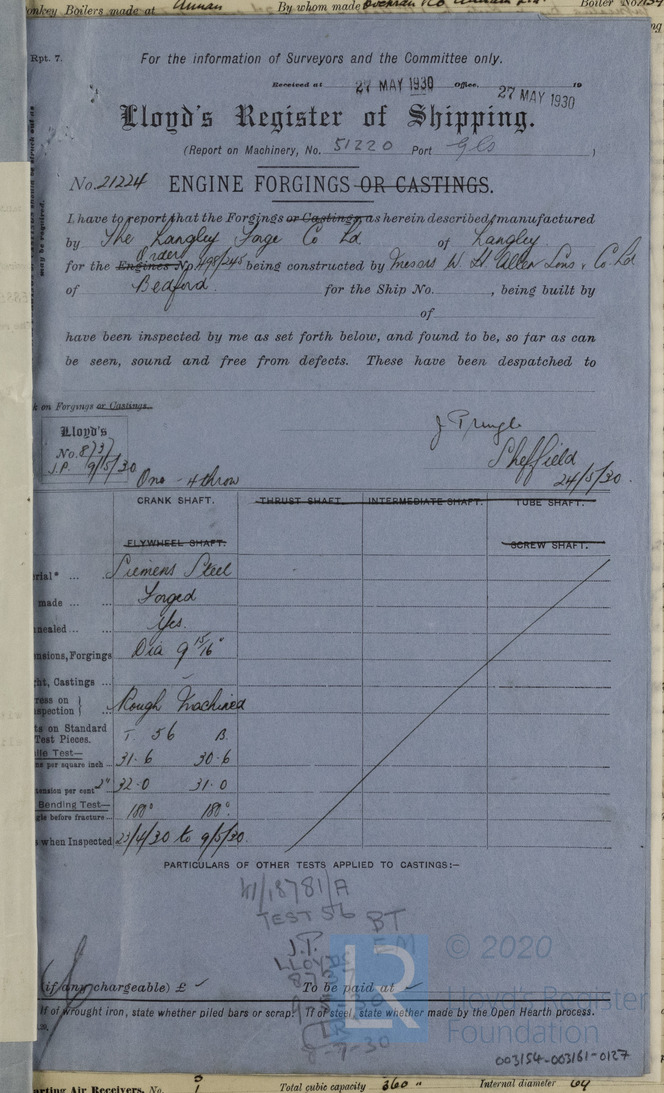 onkey Boilers made at Annan By whom made Cochran & Co Annan Ltd Boiler No
Rpt. 7.
For the information of Surveyors and the Committee only.
Received at 27 MAY 1930 Office, 27 MAY 1930 19
Lloyd's Register of Shipping.
(Report on Machinery, No. 51220 Port Gls )
No. 21224 ENGINE FORGINGS OR CASTINGS.
I have to report that the Forgings or Castings, as herein described, manufactured
by The Langley Forge Co Ld of Langley
Order
for the Engines No. 498/245 being constructed by Messrs W. H. Allen Sons & Co Ld
of Bedford for the Ship No. , being built by
of
have been inspected by me as set forth below, and found to be, so far as can
be seen, sound and free from defects. These have been despatched to
k on Forgings or Castings.
Lloyd's
No. 8737
J.P. 9/5/30
J Pringle
Sheffield
24/5/30.
One - 4 throw
CRANK SHAFT. THRUST SHAFT. INTERMEDIATE SHAFT. TUBE SHAFT.
FLYWHEEL SHAFT. SCREW SHAFT.
erial* ... Siemens Steel
made ... Forged
nealed ... Yes.
nsions, Forgings Dia 9 15/16"
ht, Castings ... -
ress on
spection Rough Machined
ts on Standard
Test Pieces. T. 56 B.
ile Test—
s per square inch ... 31.6 30.6
tension per cent 2" 32.0 31.0
Bending Test—
gle before fracture ... 180° 180°.
s when Inspected 23/4/30 to 9/5/30.
PARTICULARS OF OTHER TESTS APPLIED TO CASTINGS:—
W/18781/A
TEST 56 BT
J.P. F M
LLOYDS
8737
9-5-30
8-7-30
LR
© 2020
Lloyd's Register
Foundation
(if any chargeable) £ To be paid at
If of wrought iron, state whether piled bars or scrap. If of steel, state whether made by the Open Hearth process.
003154-003161-0127
arting Air Receivers, No. 1 Total cubic capacity 360 " Internal diameter 64